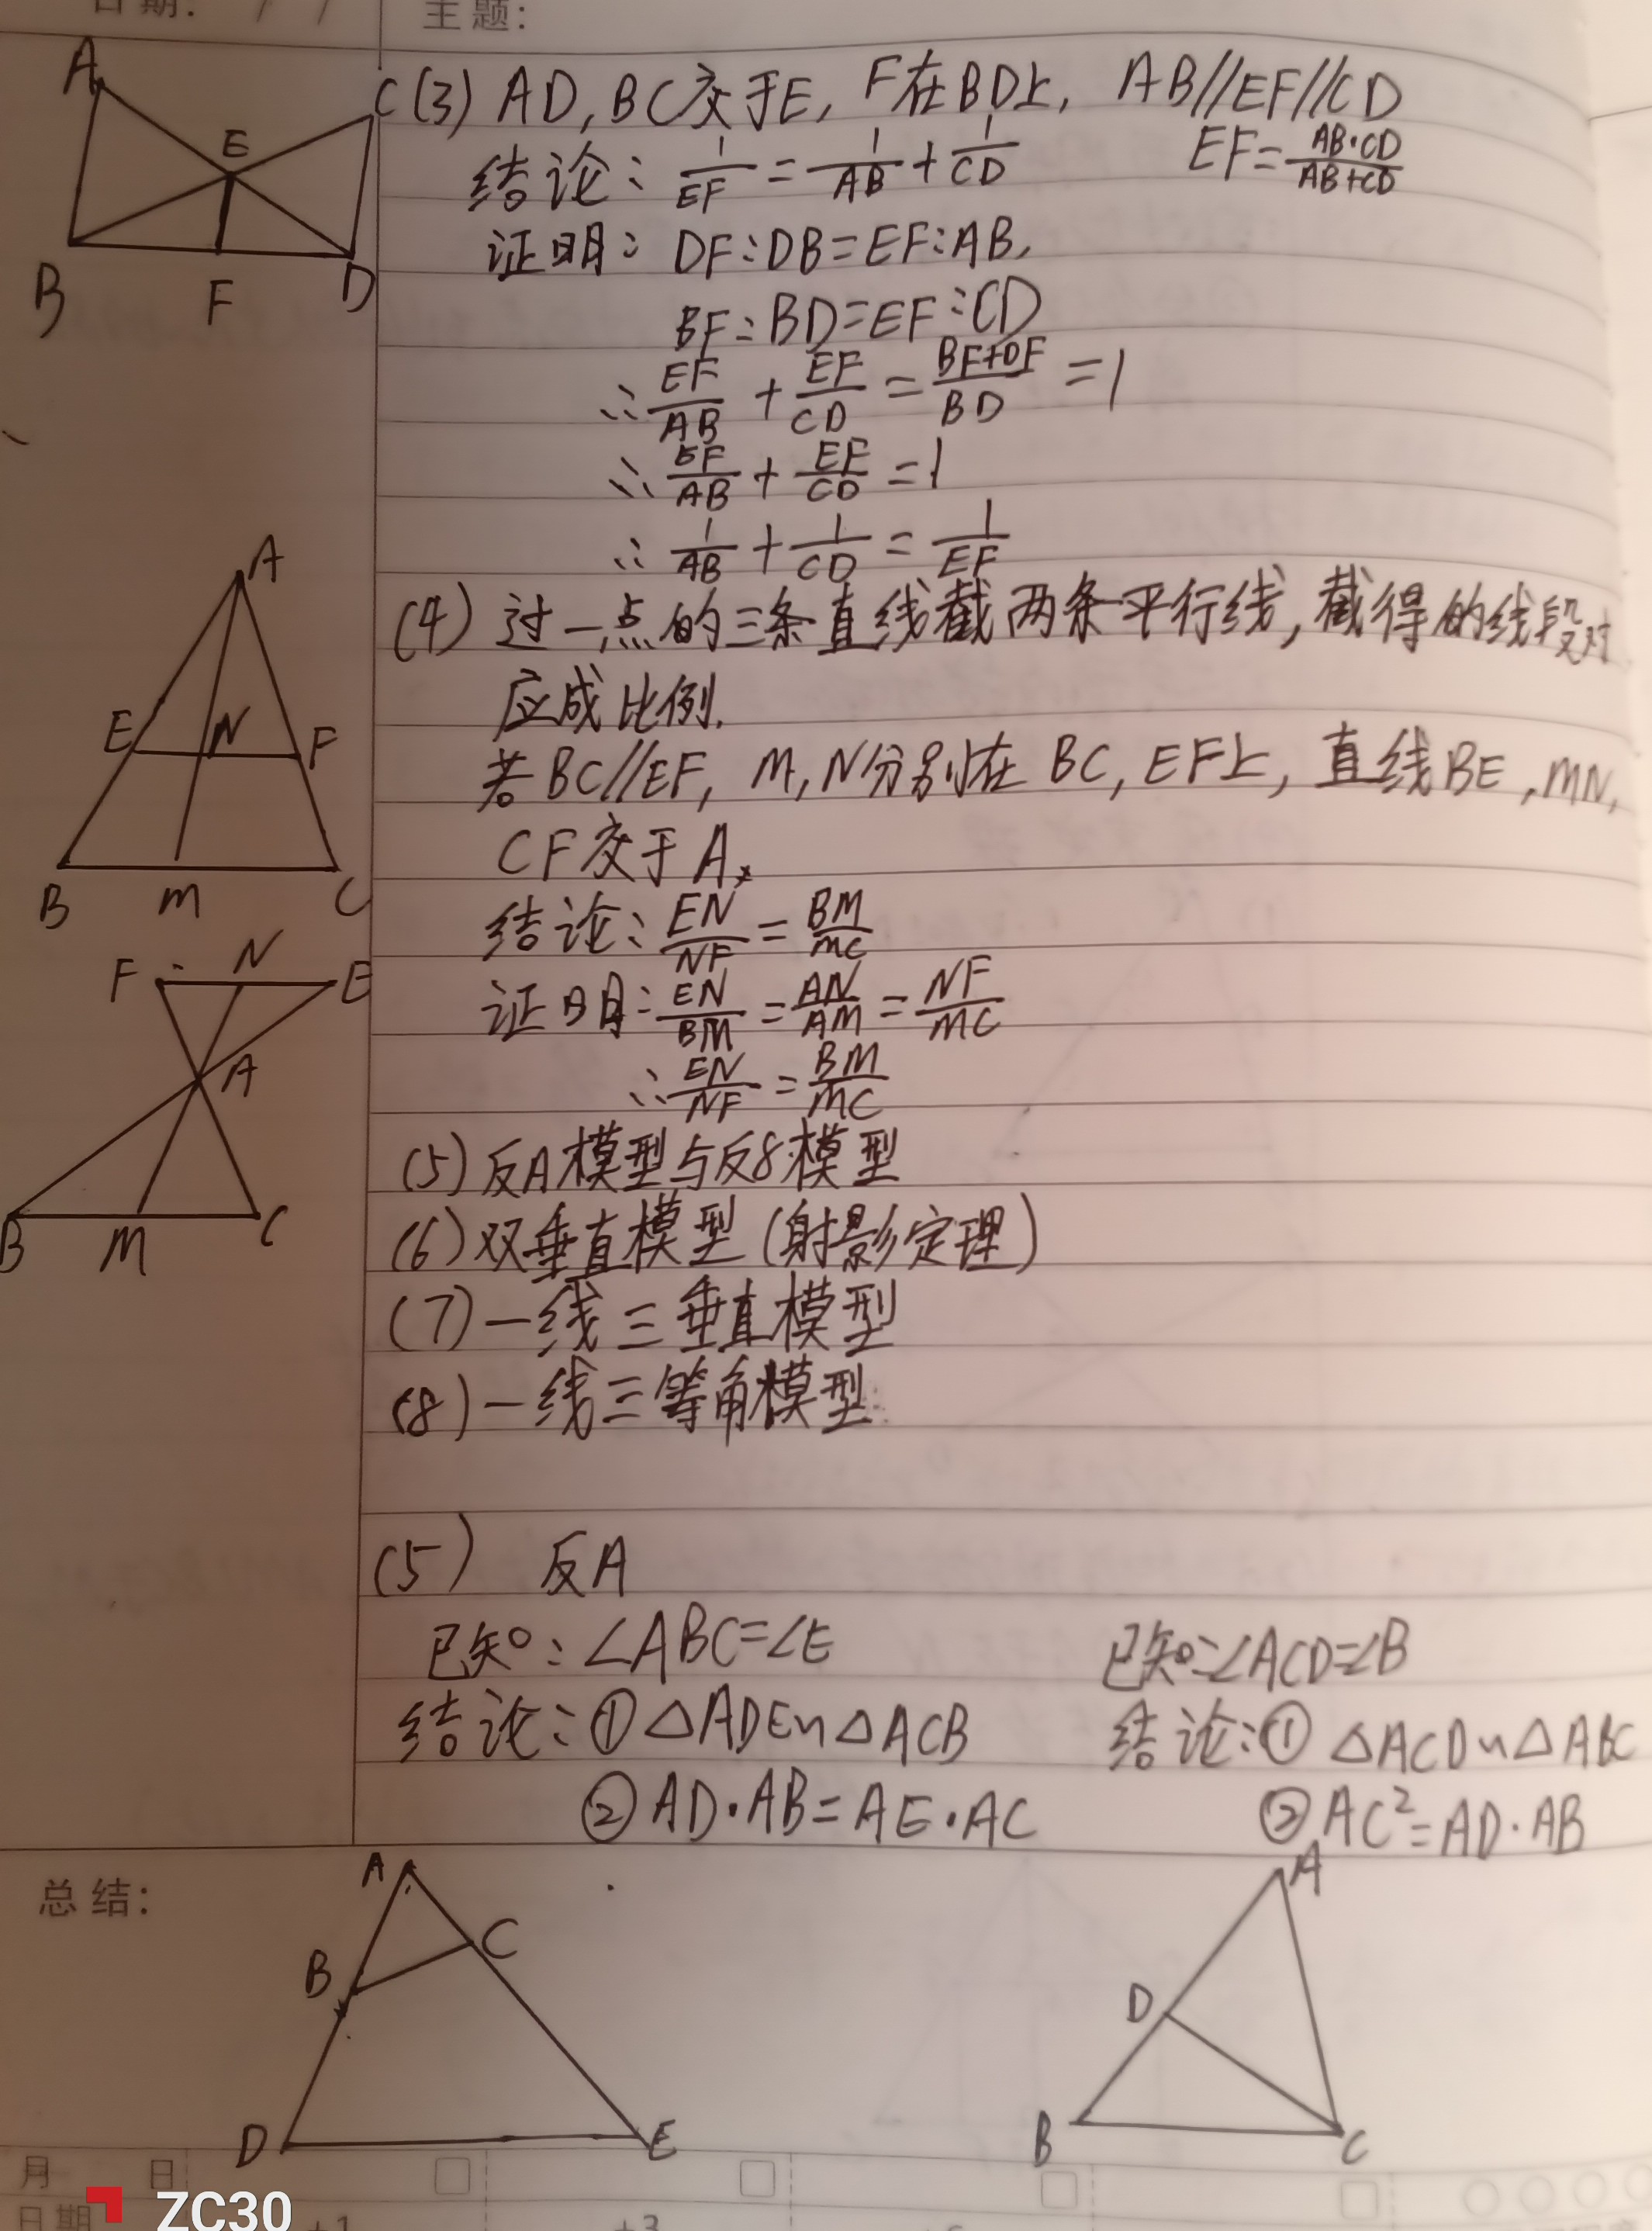 日期: / /
主题:
(3) AD,BC交于E, F在BD上, AB//EF//CD
结论: 1/EF = 1/AB + 1/CD EF = AB·CD/AB+CD
证明: DF:DB=EF:AB,
BF:BD=EF:CD
∴ EF/AB + EF/CD = BF+DF/BD = 1
∴ EF/AB + EF/CD = 1
∴ 1/AB + 1/CD = 1/EF
(4) 过一点的三条直线截两条平行线,截得的线段对
应成比例.
若BC//EF, M,N分别在BC,EF上, 直线BE,MN,
CF交于A,
结论: EN/NF = BM/MC
证明: EN/BM = AN/AM = NF/MC
∴ EN/NF = BM/MC
(5) 反A模型与反8模型
(6) 双垂直模型(射影定理)
(7) 一线三垂直模型
(8) 一线三等角模型
(5) 反A
已知: ∠ABC=∠E
结论: ① △ADE∽△ACB
② AD·AB=AE·AC
已知: ∠ACD=∠B
结论: ① △ACD∽△ABC
② AC²=AD·AB
A
C
E
B
F
D
A
E
N
F
B
M
C
F
N
E
A
B
M
C
总结:
A
B
C
D
E
A
D
B
C
月 日
日期
+1
+3
ZC30